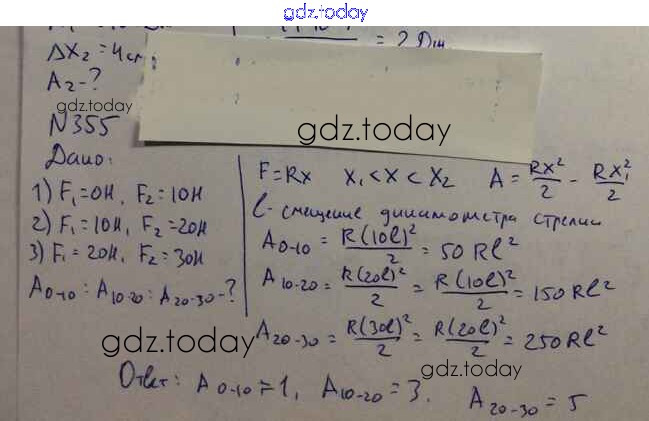 gdz.today
ΔX₂ = 4см
= 2 Дж.
A₂ - ?
gdz.today
N355
gdz.today
Дано:
1) F₁ = 0H, F₂ = 10H
2) F₁ = 10H, F₂ = 20H
3) F₁ = 20H, F₂ = 30H
A₀₋₁₀ : A₁₀₋₂₀ : A₂₀₋₃₀ - ?
F = Rx X₁ < X < X₂ A = RX²/2 - RX₁²/2
l - смещение динамометра стрелки
A₀₋₁₀ = R(10l)²/2 = 50 Rl²
A₁₀₋₂₀ = R(20l)²/2 = R(10l)²/2 = 150 Rl²
A₂₀₋₃₀ = R(30l)²/2 = R(20l)²/2 = 250 Rl²
gdz.today
gdz.today
Ответ: A₀₋₁₀ = 1, A₁₀₋₂₀ = 3, A₂₀₋₃₀ = 5